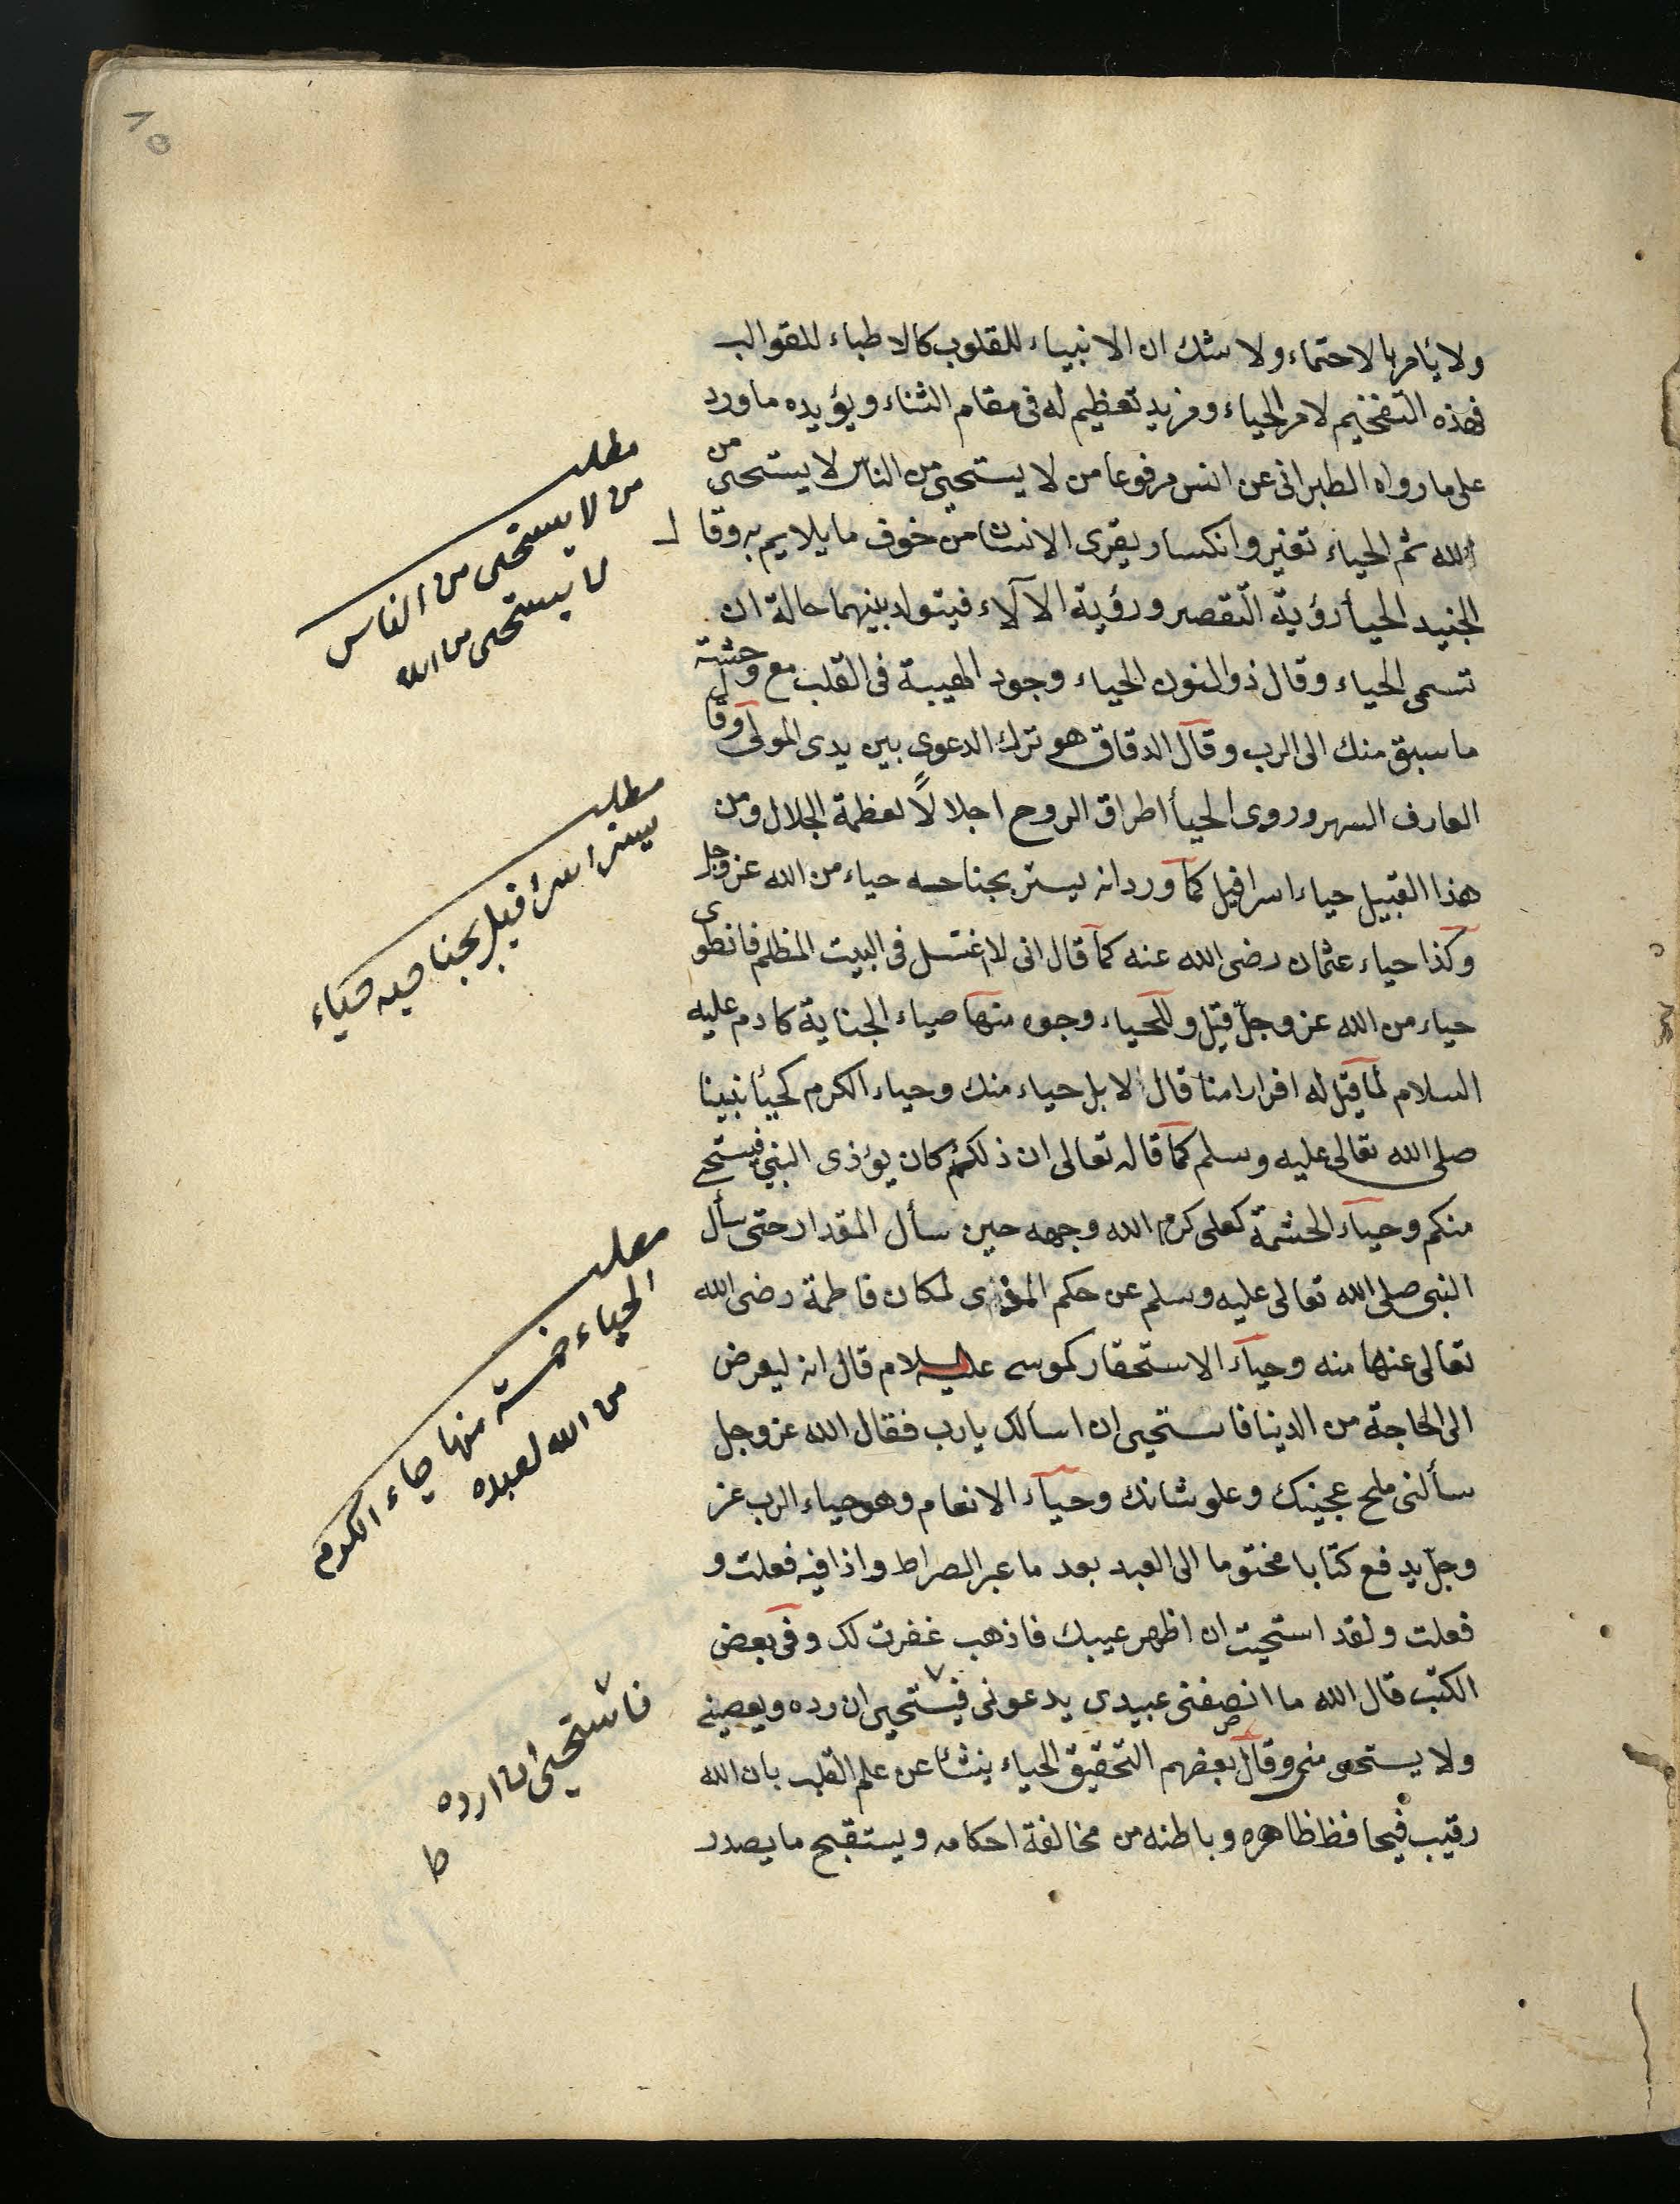 ولا يأمر بالاحتماء ولا شك ان الانبياء للقلوب كالاطباء للقوالب
فهذه التفخيم لامر الحياء ومزيد تعظيم له فى مقام الثناء ويؤيده ما ورد
على ما رواه الطبرانى عن انس مرفوعا من لا يستحيى من الناس لا يستحيى من
الله ثم الحياء تغير وانكسار يعترى الانسان من خوف ما يلايم به وقال
الجنيد الحيأ رؤية التقصير ورؤية الآلاء فيتولد بينهما حالة ان
تسمى الحياء وقال ذو النون الحياء وجود الهيبة فى القلب مع وحشة
ما سبق منك الى الرب وقال الدقاق هو ترك الدعوى بين يدى المولى وقال
العارف السهروردى الحيأ اطراق الروح اجلالاً لعظمة الجلال ومن
هذا القبيل حياء اسرافيل كما ورد انه يستر بجناحه حياء من الله عز وجل
وكذا حياء عثمان رضى الله عنه كما قال انى لاغتسل فى البيت المظلم فانطوى
حياء من الله عز وجلّ قيل وللحياء وجوه منها حياء الجناية كادم عليه
السلام لما قيل له افرارا منا قال لا بل حياء منك وحياء الكرم كحيأ نبينا
صلى الله تعالى عليه وسلم كما قال تعالى ان ذلكم كان يؤذى النبى فيستحى
منكم وحياء الحشمة كعلى كرم الله وجهه حين سأل المقداد حتى سأل
النبى صلى الله تعالى عليه وسلم عن حكم المذى لمكان فاطمة رضى الله
تعالى عنها منه وحياء الاستحقار كموسى عليه السلام قال انه ليعرض
الى الحاجة من الدينا فاستحيى ان اسألك يارب فقال الله عز وجل
سألنى ملح عجينك وعلو شانك وحياء الانعام وهو حياء الرب عز
وجلّ يدفع كتابا مختوما الى العبد بعد ما عبر الصراط واذا فيه فعلت و
فعلت ولقد استحيت ان اظهر عيبك فاذهب غفرت لك وفى بعض
الكتب قال الله ما انصفنى عبدى يدعونى فيستحيى ان رده ويعصينى
ولا يستحى منى وقال بعضهم التحقيق الحياء ينشأ عن علم القلب بان الله
رقيب فيحافظ ظاهره وباطنه من مخالفة احكامه ويستقبح ما يصدر
مطلب
من لا يستحى من الناس
لا يستحى من الله
مطلب
يستر اسرافيل بجناحيه حياء
مطلب
الحياء خمسة منها حياء الكرم
من الله لعبده
فاستحيى ان ارده
ط